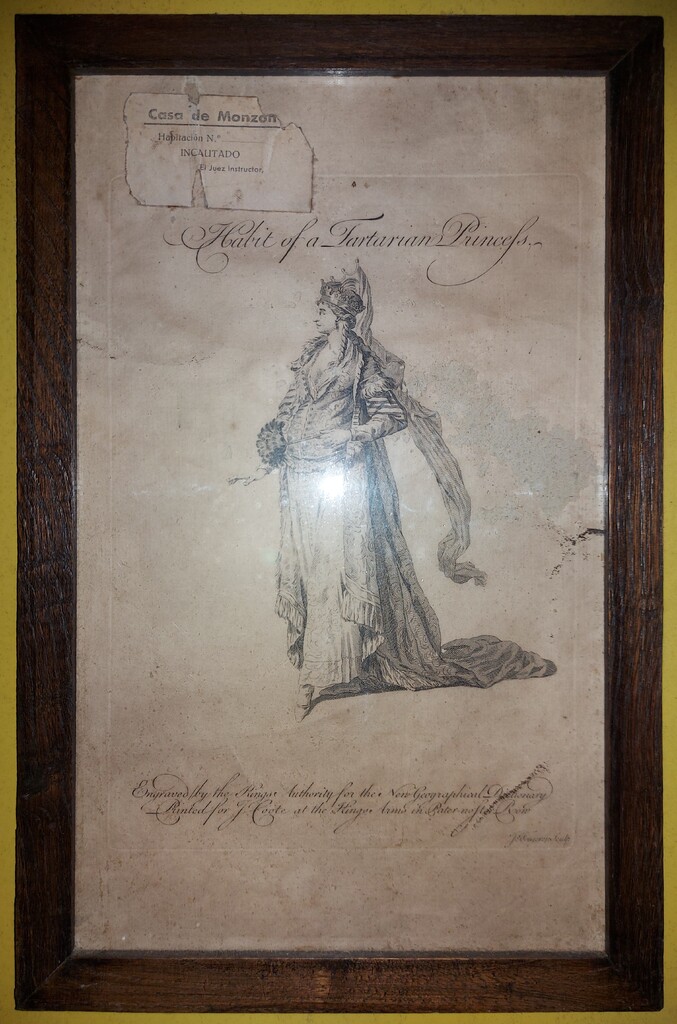 Casa de Monzón
Habitación N.º
INCAUTADO
El Juez Instructor,
Habit of a Tartarian Princess.
Engraved by the Kings Authority for the New Geographical Dictionary
Printed for J. Coote at the Kings Arms in Pater-noster Row